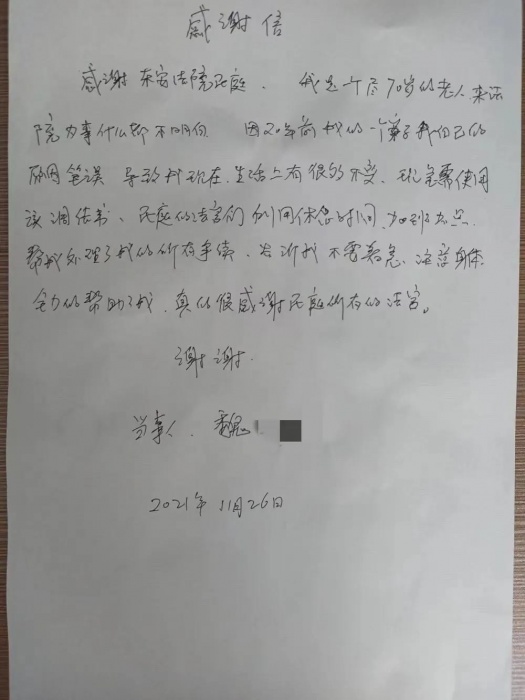 感谢信
感谢东安法院民庭、我是一个尽70岁的老人来法
院办事什么都不明白 因20年前我的一个案子我自己的
原因笔误 导致我现在生活上有很多不变、现急需使用
该调结书、民庭的法官们利用休息时间、加班加点
帮我处理了我的所有手续、告诉我不需着急、注意身体
全力的帮助了我、真的很感谢民庭所有的法官。
谢谢.
当事人、魏
2021年11月26日